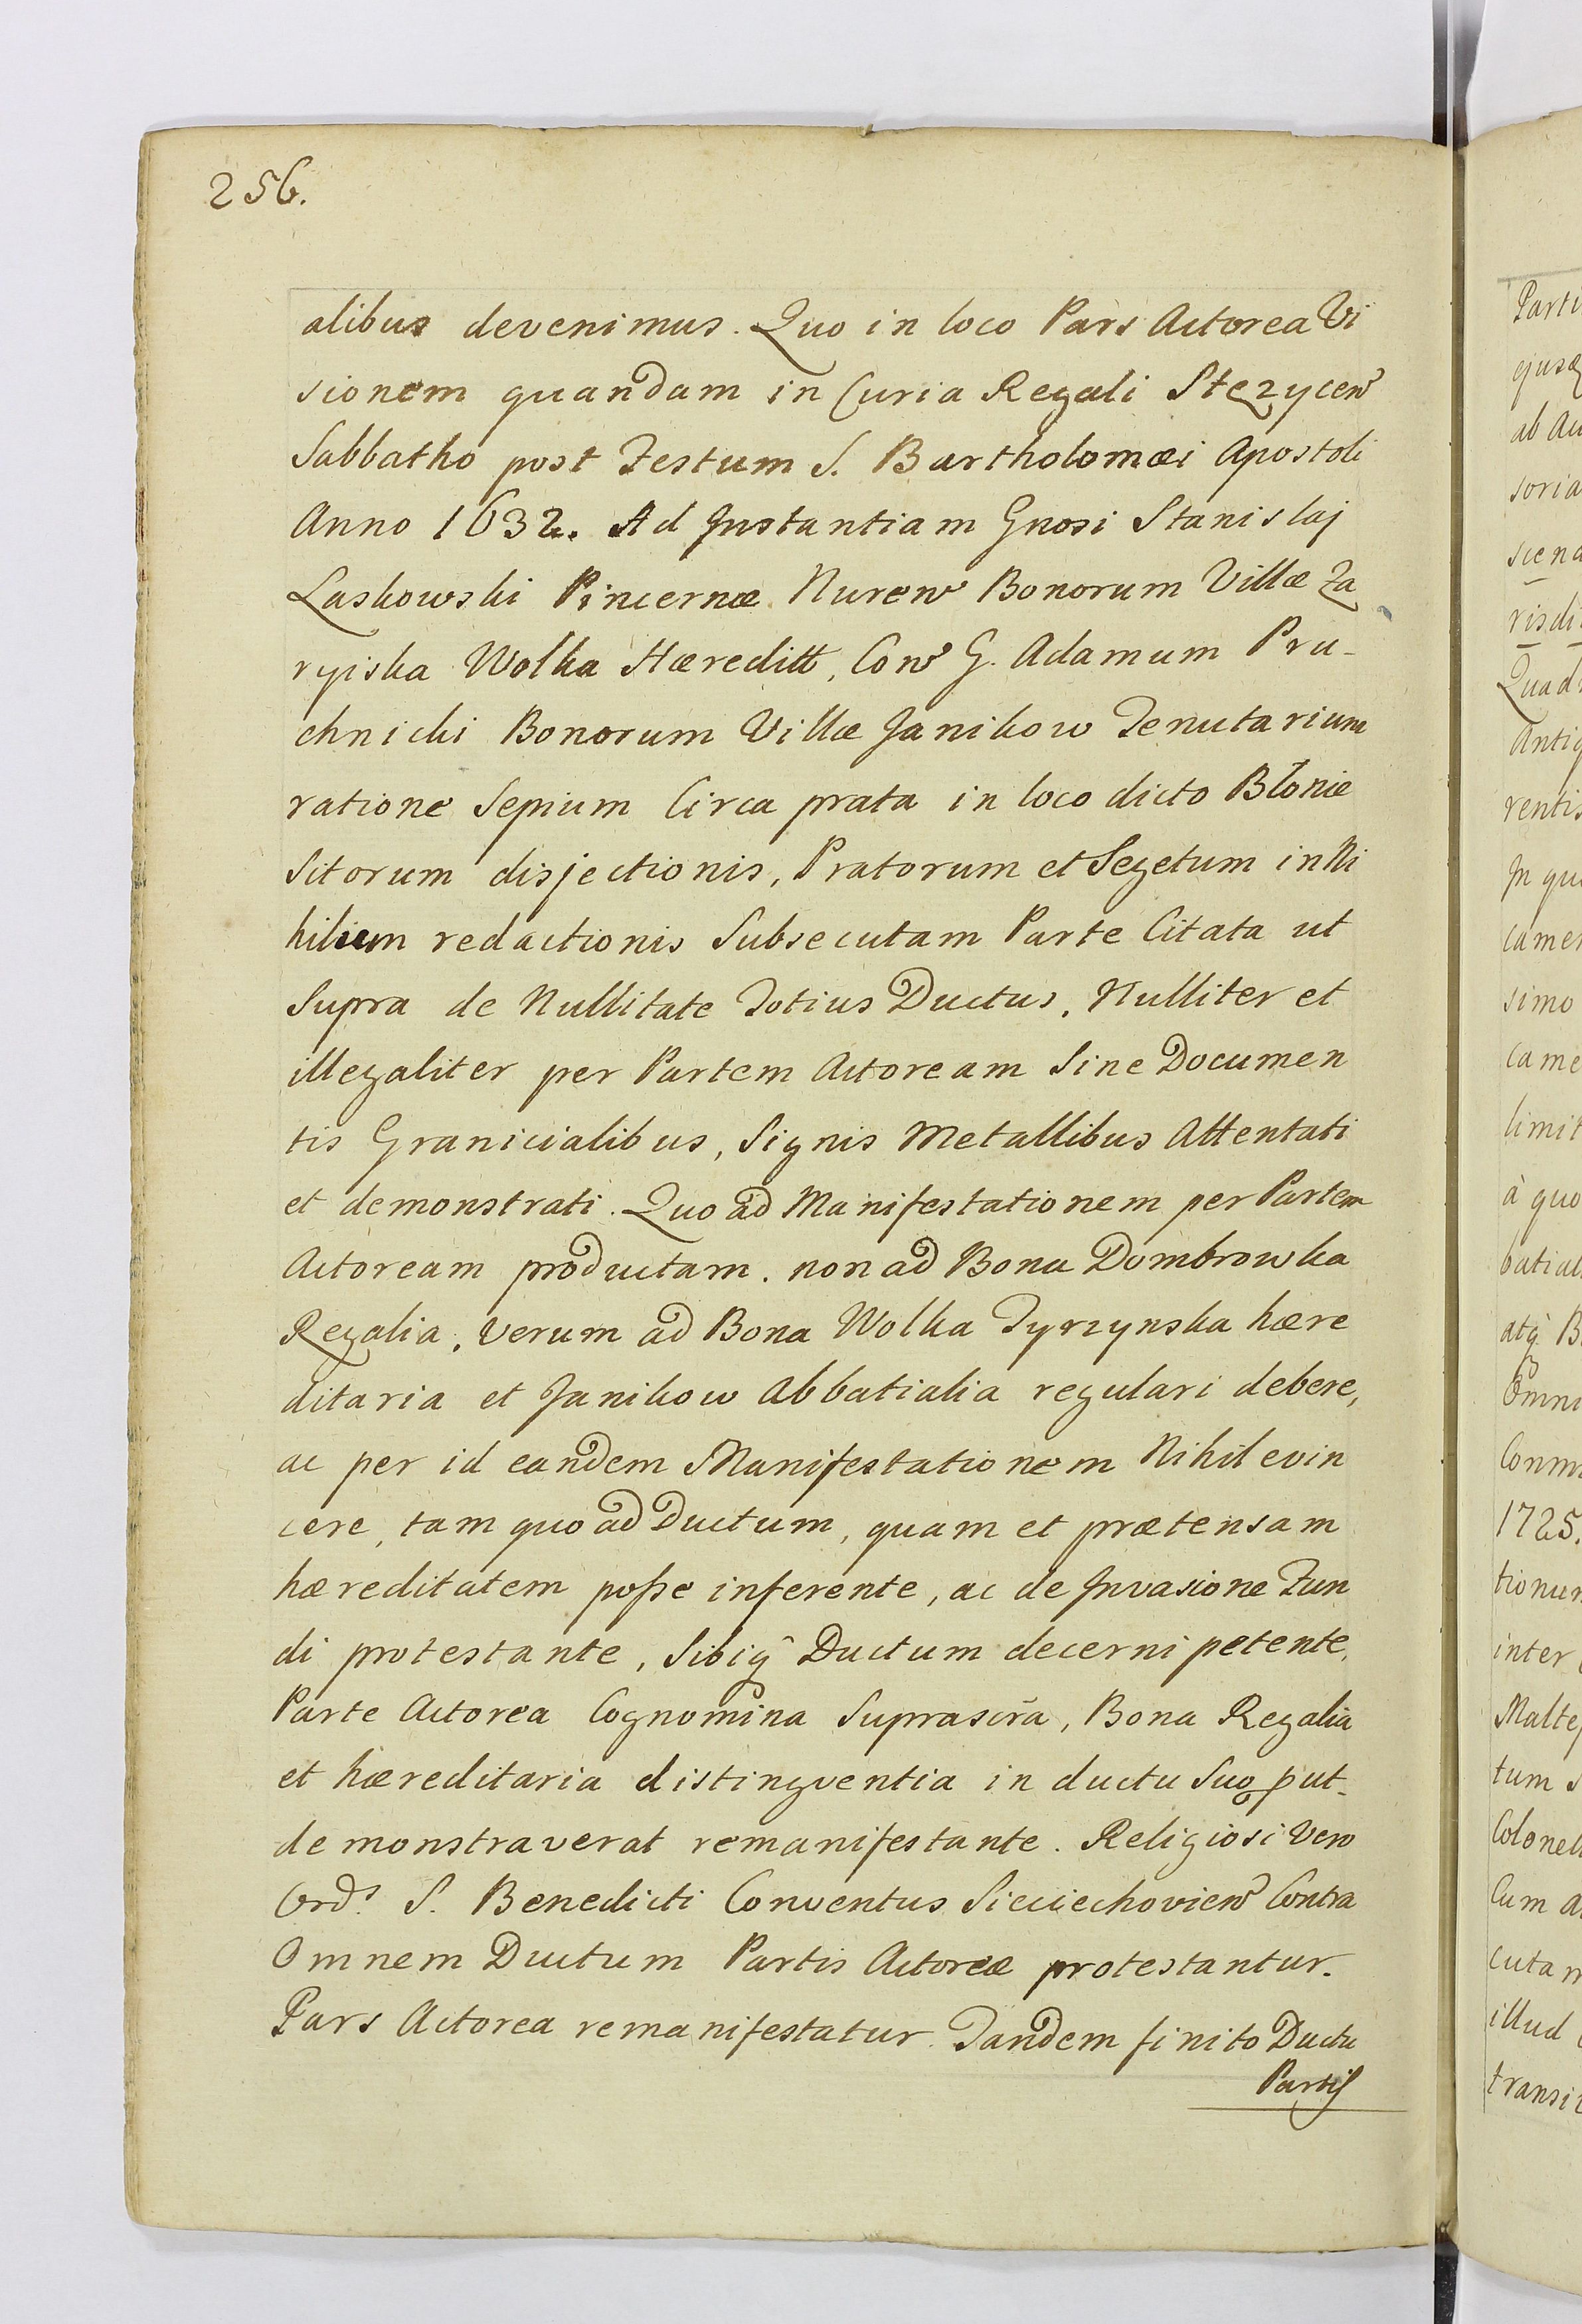 256.
alibus devenimus. Quo in loco Pars Actorea Vi
sionem quandam in Curia Regali Stęzycen̄
Sabbatho post Festum S. Bartholomæi Apostoli
Anno 1632. Ad Instantiam Gnosi Stanislaj
Laskowski Pincernæ Nuren̄ Bonorum Villæ Za
ryiska Wolka Hæreditt, Con̄ G. Adamum Pru-
chnicki Bonorum Villæ Janikow Tenutarium
ratione Sepium Circa prata in loco dicto Błonie
Sitorum disjectionis, Pratorum et Segetum in Ni
hilum redactionis Subsecutam Parte Citata ut
Supra de Nullitate Totius Ductus, Nulliter et
illegaliter per Partem Actoream Sine Documen
tis Granicialibus, Signis Metallibus Attentati
et demonstrati. Quo ad Manifestationem per Partem
Actoream productam. non ad Bona Dombrowka
Regalia, verum ad Bona Wolka Tyrzynska hære
ditaria et Janikow Abbatialia regulari debere,
ac per id eandem Manifestationem Nihil evin
cere, tam quo ad Ductum, quam et prætensam
hæreditatem poſse inferente, ac de Invasione Fun
di protestante, Sibiq̄ Ductum decerni petente,
Parte Actorea Cognomina Suprascr̄a, Bona Regalia
et hæreditaria distingventia in ductu Suo put-
demonstraverat remanifestante. Religiosi Vero
Ord: S. Benedicti Conventus Sieciechovien̄ Contra
Omnem Ductum Partis Actoreæ protestantur.
Pars Actorea remanifestatur. Tandem finito Ductu
Partis
Parti
ab
soria
scena
Quad
Antiq
rentis
In qu
camer
simo
came
limit
à quo
batial
atq̄ B
Omni
1725.
tionum
inter
tum
Colonel
Cum a
cutam
illud
transi